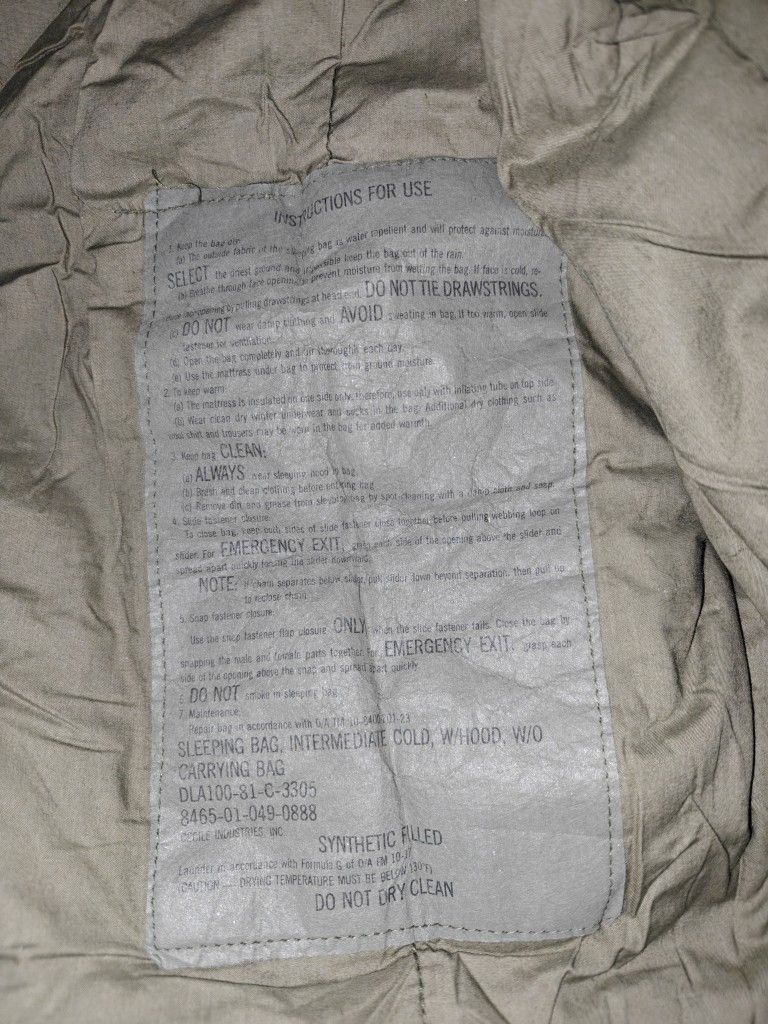 INSTRUCTIONS FOR USE
1. Keep the bag dry.
(a) The outside fabric of the sleeping bag is water repellent and will protect against moisture.
SELECT the driest ground and if possible keep the bag out of the rain.
(b) Breathe through face opening to prevent moisture from wetting the bag. If face is cold, re-
duce face opening by pulling drawstrings at head end. DO NOT TIE DRAWSTRINGS.
(c) DO NOT wear damp clothing and AVOID sweating in bag. If too warm, open slide
fastener for ventilation.
(d) Open the bag completely and air thoroughly each day.
(e) Use the mattress under bag to protect from ground moisture.
2. To keep warm:
(a) The mattress is insulated on one side only, therefore, use only with inflating tube on top side.
(b) Wear clean dry winter underwear and socks in the bag. Additional dry clothing such as
wool shirt and trousers may be worn in the bag for added warmth.
3. Keep bag CLEAN:
(a) ALWAYS wear sleeping hood in bag.
(b) Brush and clean clothing before entering bag.
(c) Remove dirt and grease from sleeping bag by spot cleaning with a damp cloth and soap.
4. Slide fastener closure:
To close bag, keep both sides of slide fastener close together before pulling webbing loop on
slider. For EMERGENCY EXIT, grasp each side of the opening above the slider and
spread apart quickly forcing the slider downward.
NOTE: If chain separates below slider, pull slider down beyond separation, then pull up
to reclose chain.
5. Snap fastener closure:
Use the snap fastener flap closure ONLY when the slide fastener fails. Close the bag by
snapping the male and female parts together. For EMERGENCY EXIT, grasp each
side of the opening above the snap and spread apart quickly.
6. DO NOT smoke in sleeping bag.
7. Maintenance:
Repair bag in accordance with D/A TM 10-8400-201-23
SLEEPING BAG, INTERMEDIATE COLD, W/HOOD, W/O
CARRYING BAG
DLA100-81-C-3305
8465-01-049-0888
CECILE INDUSTRIES, INC.
SYNTHETIC FILLED
Launder in accordance with Formula G of D/A FM 10-
(CAUTION — DRYING TEMPERATURE MUST BE BELOW 130°F)
DO NOT DRY CLEAN